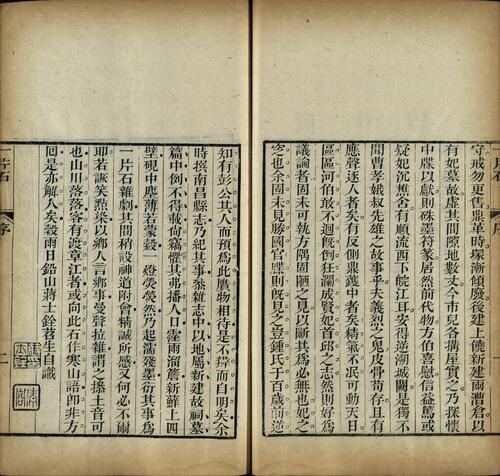 守戒勿更舊鼎革時塚漸傾廢後建上僥新兩漕倉以
有妃墓故虛其間隙地數丈今市兒各搆屋實之乃探懷
中牒以獻則硃墨符篆居然前代物方伯喜慰信益篤或
疑妃沉懋舍有順流西下皖江耳安得逆溯城闕是獨不
聞曹孝娥叔先雄之故事乎夫義烈之鬼皮骨苟存且有
應聲逐人者矣有反側鼎鑊中者矣精氣不泯可動天日
區區河伯敢不迴旣倒狂瀾成賢妃首邱之志然則好為
議論者固未可執方隅固陋之見以斷其為必無也妃之
窆也余固未見勝國官牒則旣見之豈鍾氏于百歲前逆
知有彭公其人而預為此贗物相待是不辯而自明矣余
時撰南昌縣志乃紀其事叅雜志中以地屬新建故祠墓
篇中例不得載尚竊懼其弗播人口霪雨溜簷新鮮上四
壁硯中塵薄若蒙縠一燈熒熒然乃起濡殘墨衍其事為
一片石雜劇其間稍設神道附會精誠所感又何必不爾
耶若詼笑點染以鄉人言鄉事曼聲拉雜謂之操土音可
也山川落落客有渡章江者或向此石作寒山語卽非方
囘是亦解人矣穀雨日鉛山蔣士銓苕生自識
片石
序
一片石
序
二